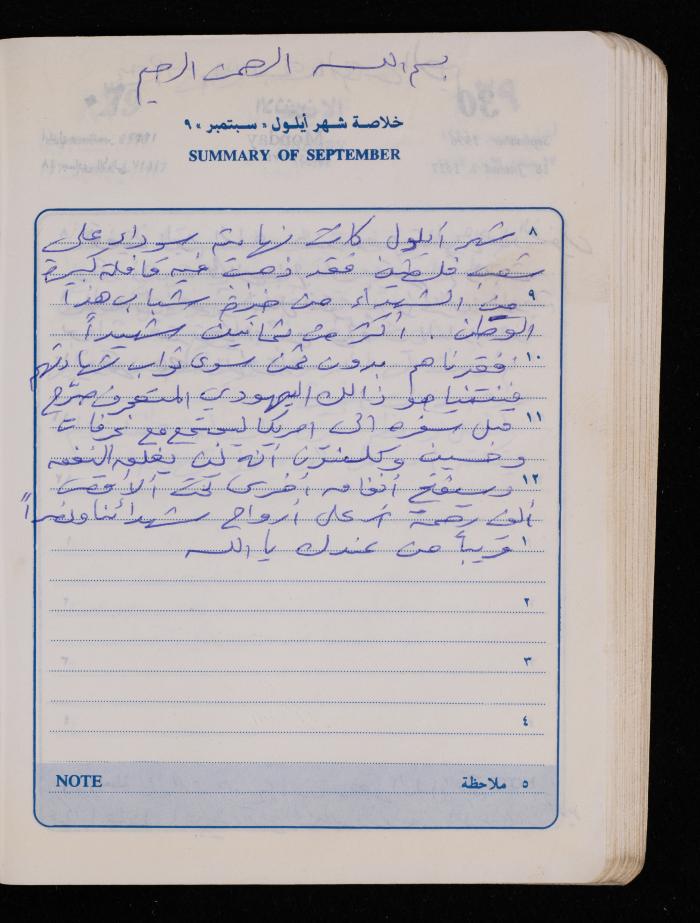 بسم الله الرحمن الرحيم
خلاصة شهر أيلول « سبتمبر » ٩
SUMMARY OF SEPTEMBER
٨ شهر أيلول كانت نهايته سوداء على
شعب فلسطين فقد ذهبت فيه قافلة كبيرة
٩ من الشهداء من خيرة شباب هذا
الوطن . أكثر من ثمانين شهيداً
١٠ فقدناهم بدون ثمن سوى ثواب شهادتهم
فنتنياهو ذالك اليهودي المتعجرف صرّح
١١ قبل سفره الى امريكا ليجتمع مع عرفات
وحسين وكلنتون أنه لن يغلق النفق
١٢ وسيفتح أنفاقه أخرى تحت الأقصى
ألف رحمة على أرواح شهدائنا ونصراً
١ قريباً من عندك يا الله
٢
٣
٤
NOTE ٥ ملاحظة